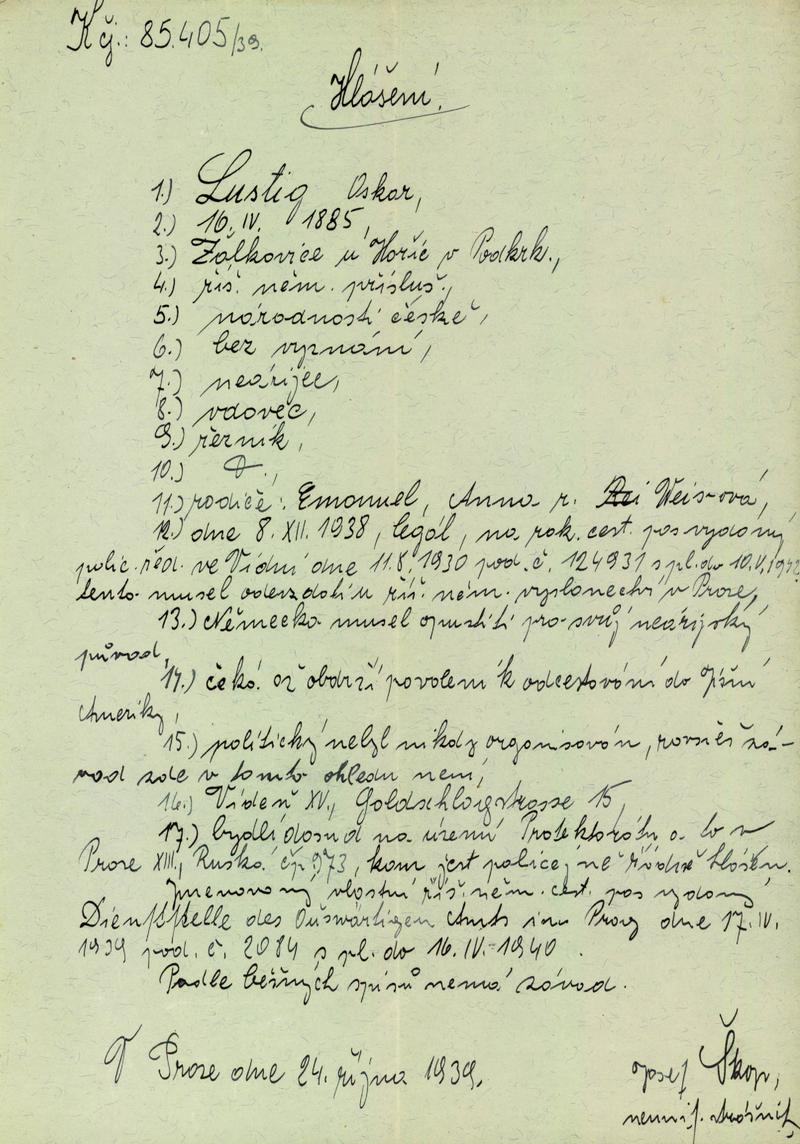 K čj.: 85.405/39.
Hlášení.
1.) Lustig Oskar,
2.) 16. IV. 1885,
3.) Žálkovice u Hořic v Podkrk.,
4.) říš. něm. přísluš.,
5.) národnosti české,
6.) bez vyznání,
7.) neárijec,
8.) vdovec,
9.) řezník,
10.)
11.) rodiče: Emanuel, Anna r. Weis-ová,
12.) dne 8. XII. 1938, legál, na rak. cest. pas vydaný
polic. řed. ve Vídni dne 11.8.1930 pod. č. 124931 s pl. do 10.V.
tento musel odevzdati u říš. něm. vyslanectví v Praze,
13.) Německo musel opustiti pro svůj neárijský
původ,
14.) čeká až obdrží povolení k odcestování do Jižní
Ameriky,
15.) politicky nebyl nikdy organisován, rovněž zá-
vad zde v tomto ohledu není,
16.) Vídeň XV., Goldschlagstrasse 15,
17.) bydlí dosud na území Protektorátu a to v
Praze XIII., Ruská čp. 973, kam jest policejně řádně hlášen.
Jmenovaný vlastní říš. něm. cest. pas vydaný
Dienststelle des Auswärtigen Amts in Prag dne 17. IV.
1939 pod. č. 2084 s pl. do 16. IV. 1940.
Podle běžných spisů nemá závad.
V Praze dne 24. října 1939.
Josef Škop,
strážník